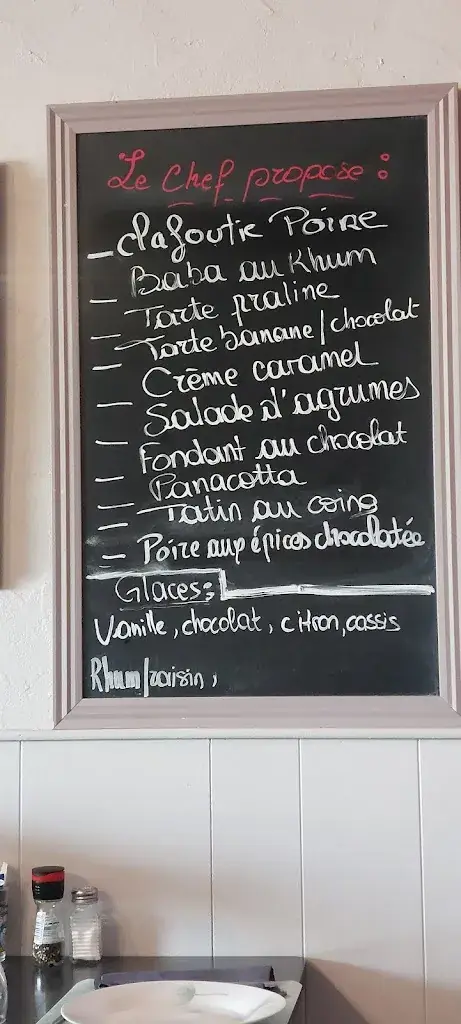 Le Chef propose :
- Clafoutie Poire
- Baba au Rhum
- Tarte praline
- Tarte banane/chocolat
- Crème caramel
- Salade d'agrumes
- Fondant au chocolat
- Panacotta
- Tatin au coing
- Poire aux épices chocolatée
Glaces :
Vanille, chocolat, citron, cassis
Rhum/raisin,